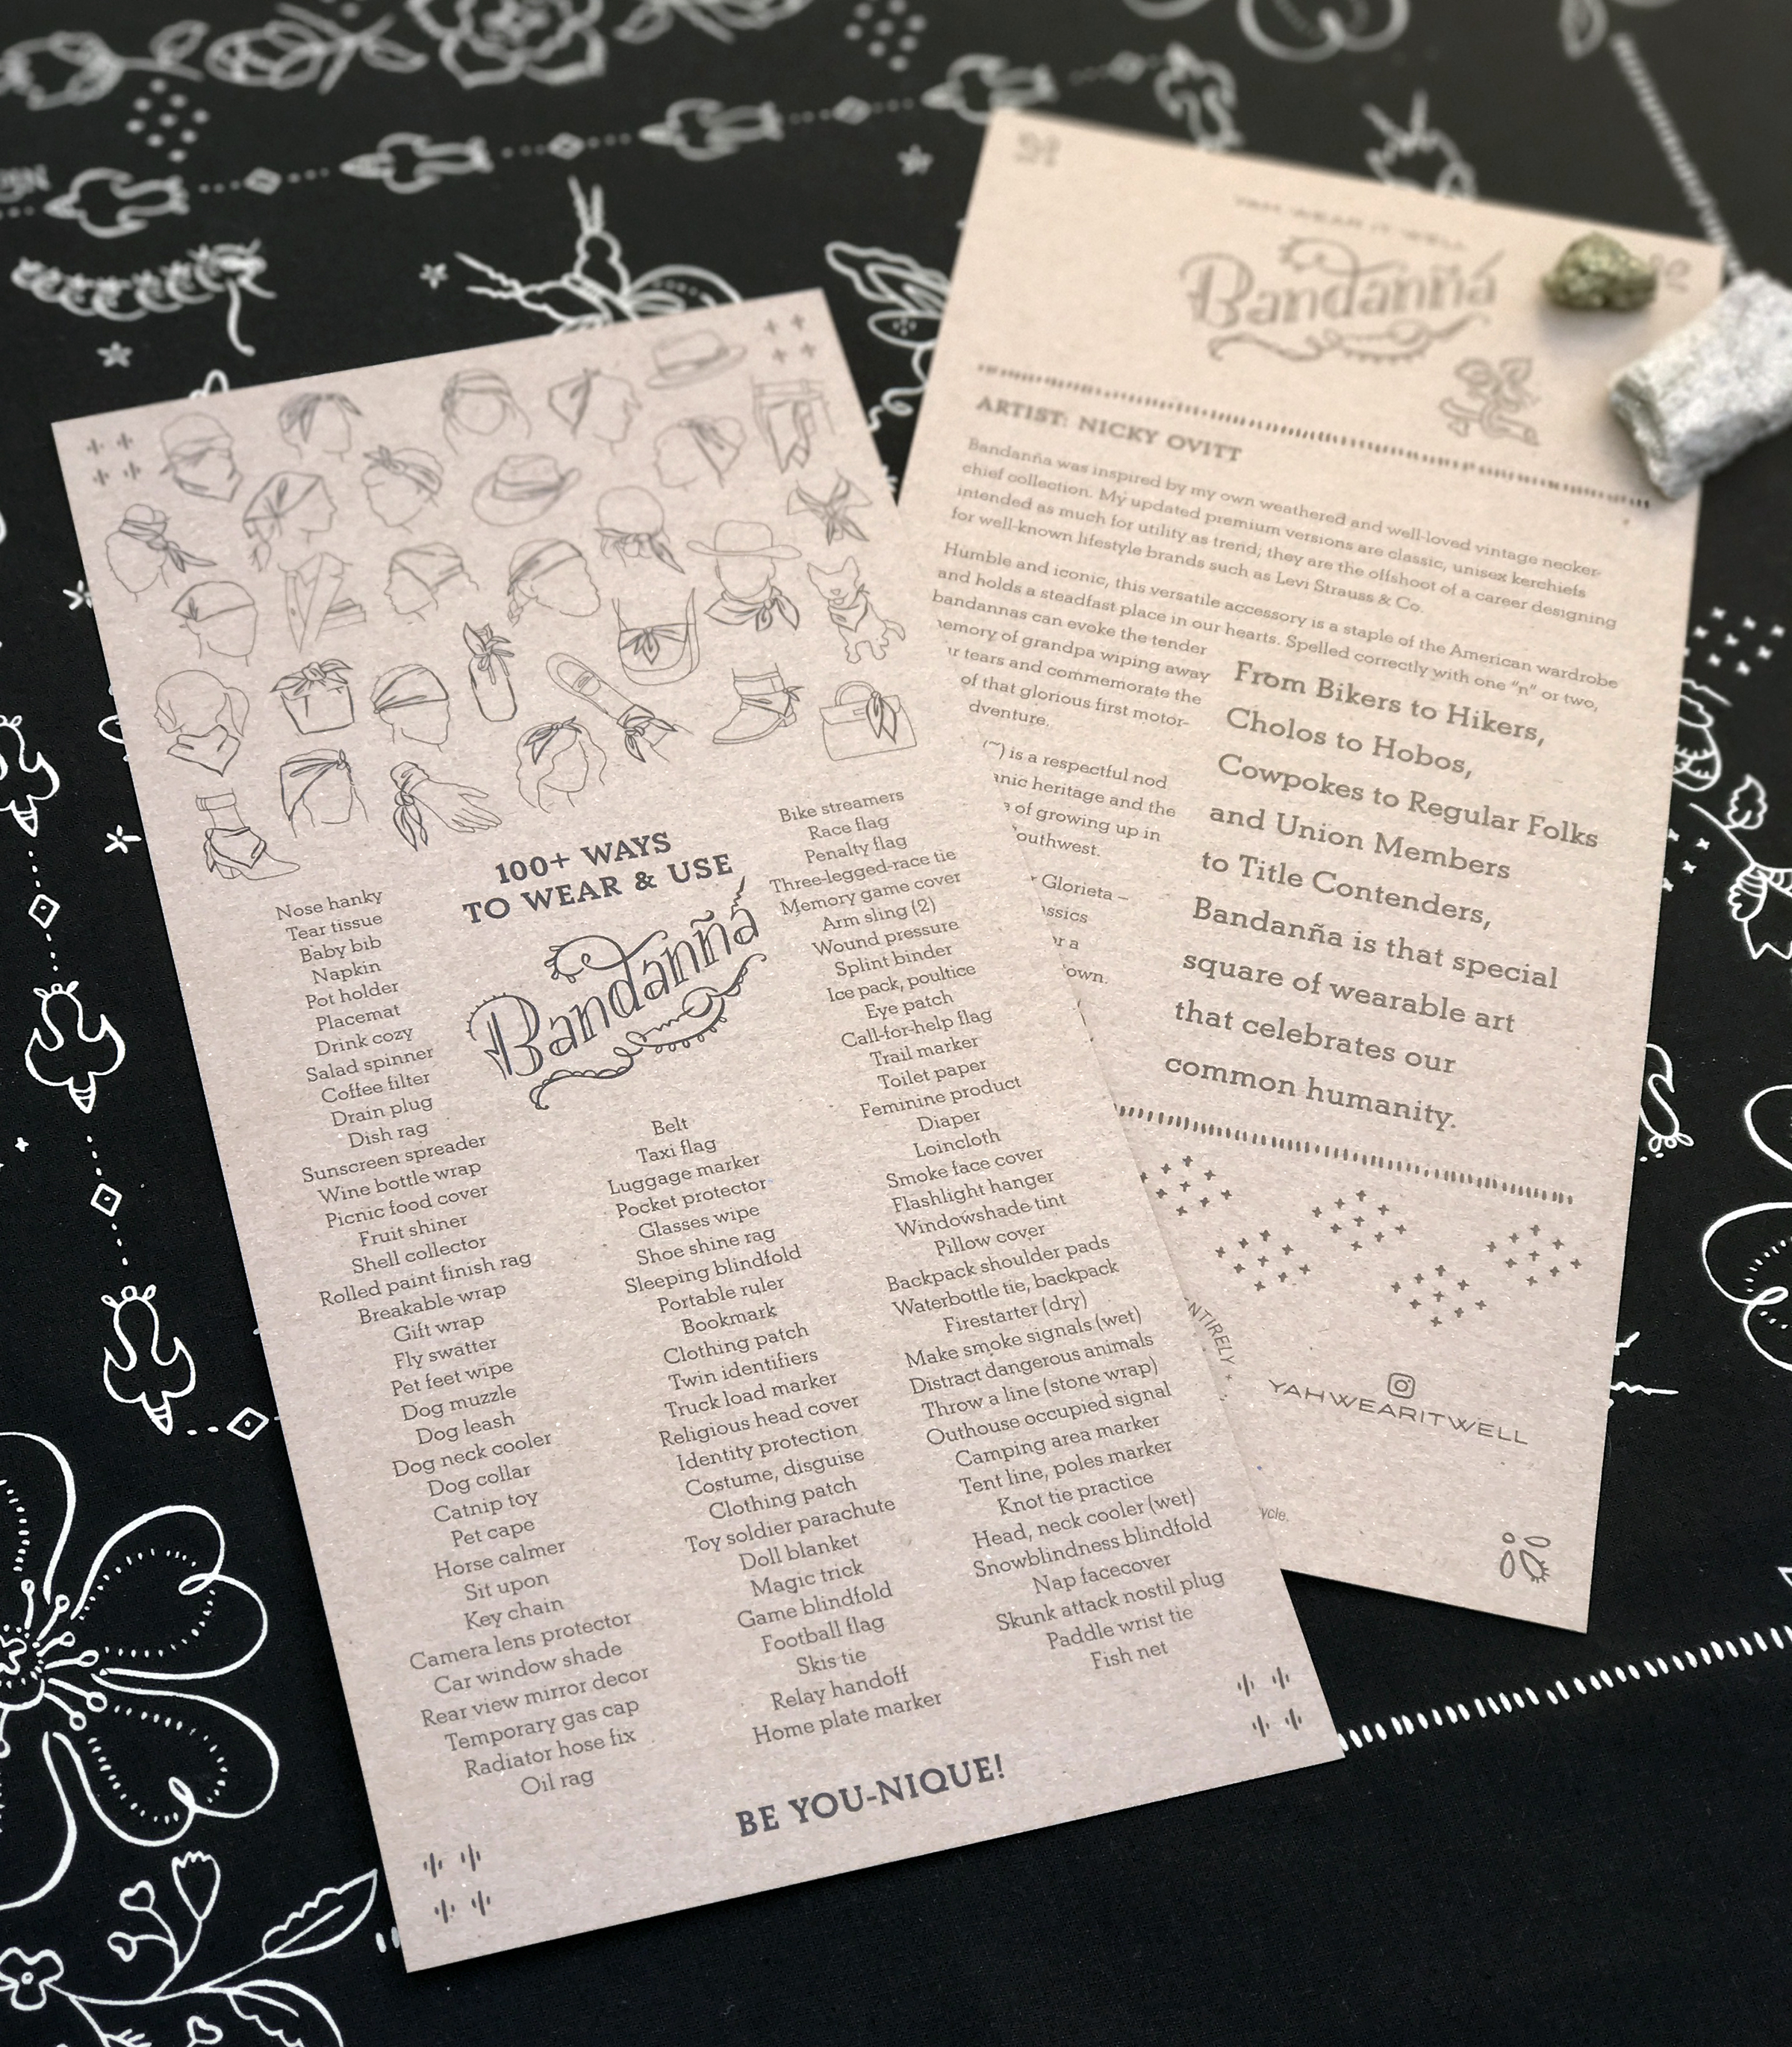 100+ WAYS
TO WEAR & USE
Bandanña
Nose hanky
Tear tissue
Baby bib
Napkin
Pot holder
Placemat
Drink cozy
Salad spinner
Coffee filter
Drain plug
Dish rag
Sunscreen spreader
Wine bottle wrap
Picnic food cover
Fruit shiner
Shell collector
Rolled paint finish rag
Breakable wrap
Gift wrap
Fly swatter
Pet feet wipe
Dog muzzle
Dog leash
Dog neck cooler
Dog collar
Catnip toy
Pet cape
Horse calmer
Sit upon
Key chain
Camera lens protector
Car window shade
Rear view mirror decor
Temporary gas cap
Radiator hose fix
Oil rag
Belt
Taxi flag
Luggage marker
Pocket protector
Glasses wipe
Shoe shine rag
Sleeping blindfold
Portable ruler
Bookmark
Clothing patch
Twin identifiers
Truck load marker
Religious head cover
Identity protection
Costume, disguise
Clothing patch
Toy soldier parachute
Doll blanket
Magic trick
Game blindfold
Football flag
Skis tie
Relay handoff
Home plate marker
Bike streamers
Race flag
Penalty flag
Three-legged-race tie
Memory game cover
Arm sling (2)
Wound pressure
Splint binder
Ice pack, poultice
Eye patch
Call-for-help flag
Trail marker
Toilet paper
Feminine product
Diaper
Loincloth
Smoke face cover
Flashlight hanger
Windowshade tint
Pillow cover
Backpack shoulder pads
Waterbottle tie, backpack
Firestarter (dry)
Make smoke signals (wet)
Distract dangerous animals
Throw a line (stone wrap)
Outhouse occupied signal
Camping area marker
Tent line, poles marker
Knot tie practice
Head, neck cooler (wet)
Snowblindness blindfold
Nap facecover
Skunk attack nostil plug
Paddle wrist tie
Fish net
BE YOU-NIQUE!
YAH WEAR IT WELL
Bandanña
ARTIST: NICKY OVITT
Bandanña was inspired by my own weathered and well-loved vintage necker-
chief collection. My updated premium versions are classic, unisex kerchiefs
intended as much for utility as trend; they are the offshoot of a career designing
for well-known lifestyle brands such as Levi Strauss & Co.
Humble and iconic, this versatile accessory is a staple of the American wardrobe
and holds a steadfast place in our hearts. Spelled correctly with one "n" or two,
bandannas can evoke the tender
emory of grandpa wiping away
r tears and commemorate the
of that glorious first motor-
dventure.
(~) is a respectful nod
anic heritage and the
of growing up in
outhwest.
Glorieta –
assics
or a
own.
From Bikers to Hikers,
Cholos to Hobos,
Cowpokes to Regular Folks
and Union Members
to Title Contenders,
Bandanña is that special
square of wearable art
that celebrates our
common humanity.
NTIRELY
YAHWEARITWELL
ycle.